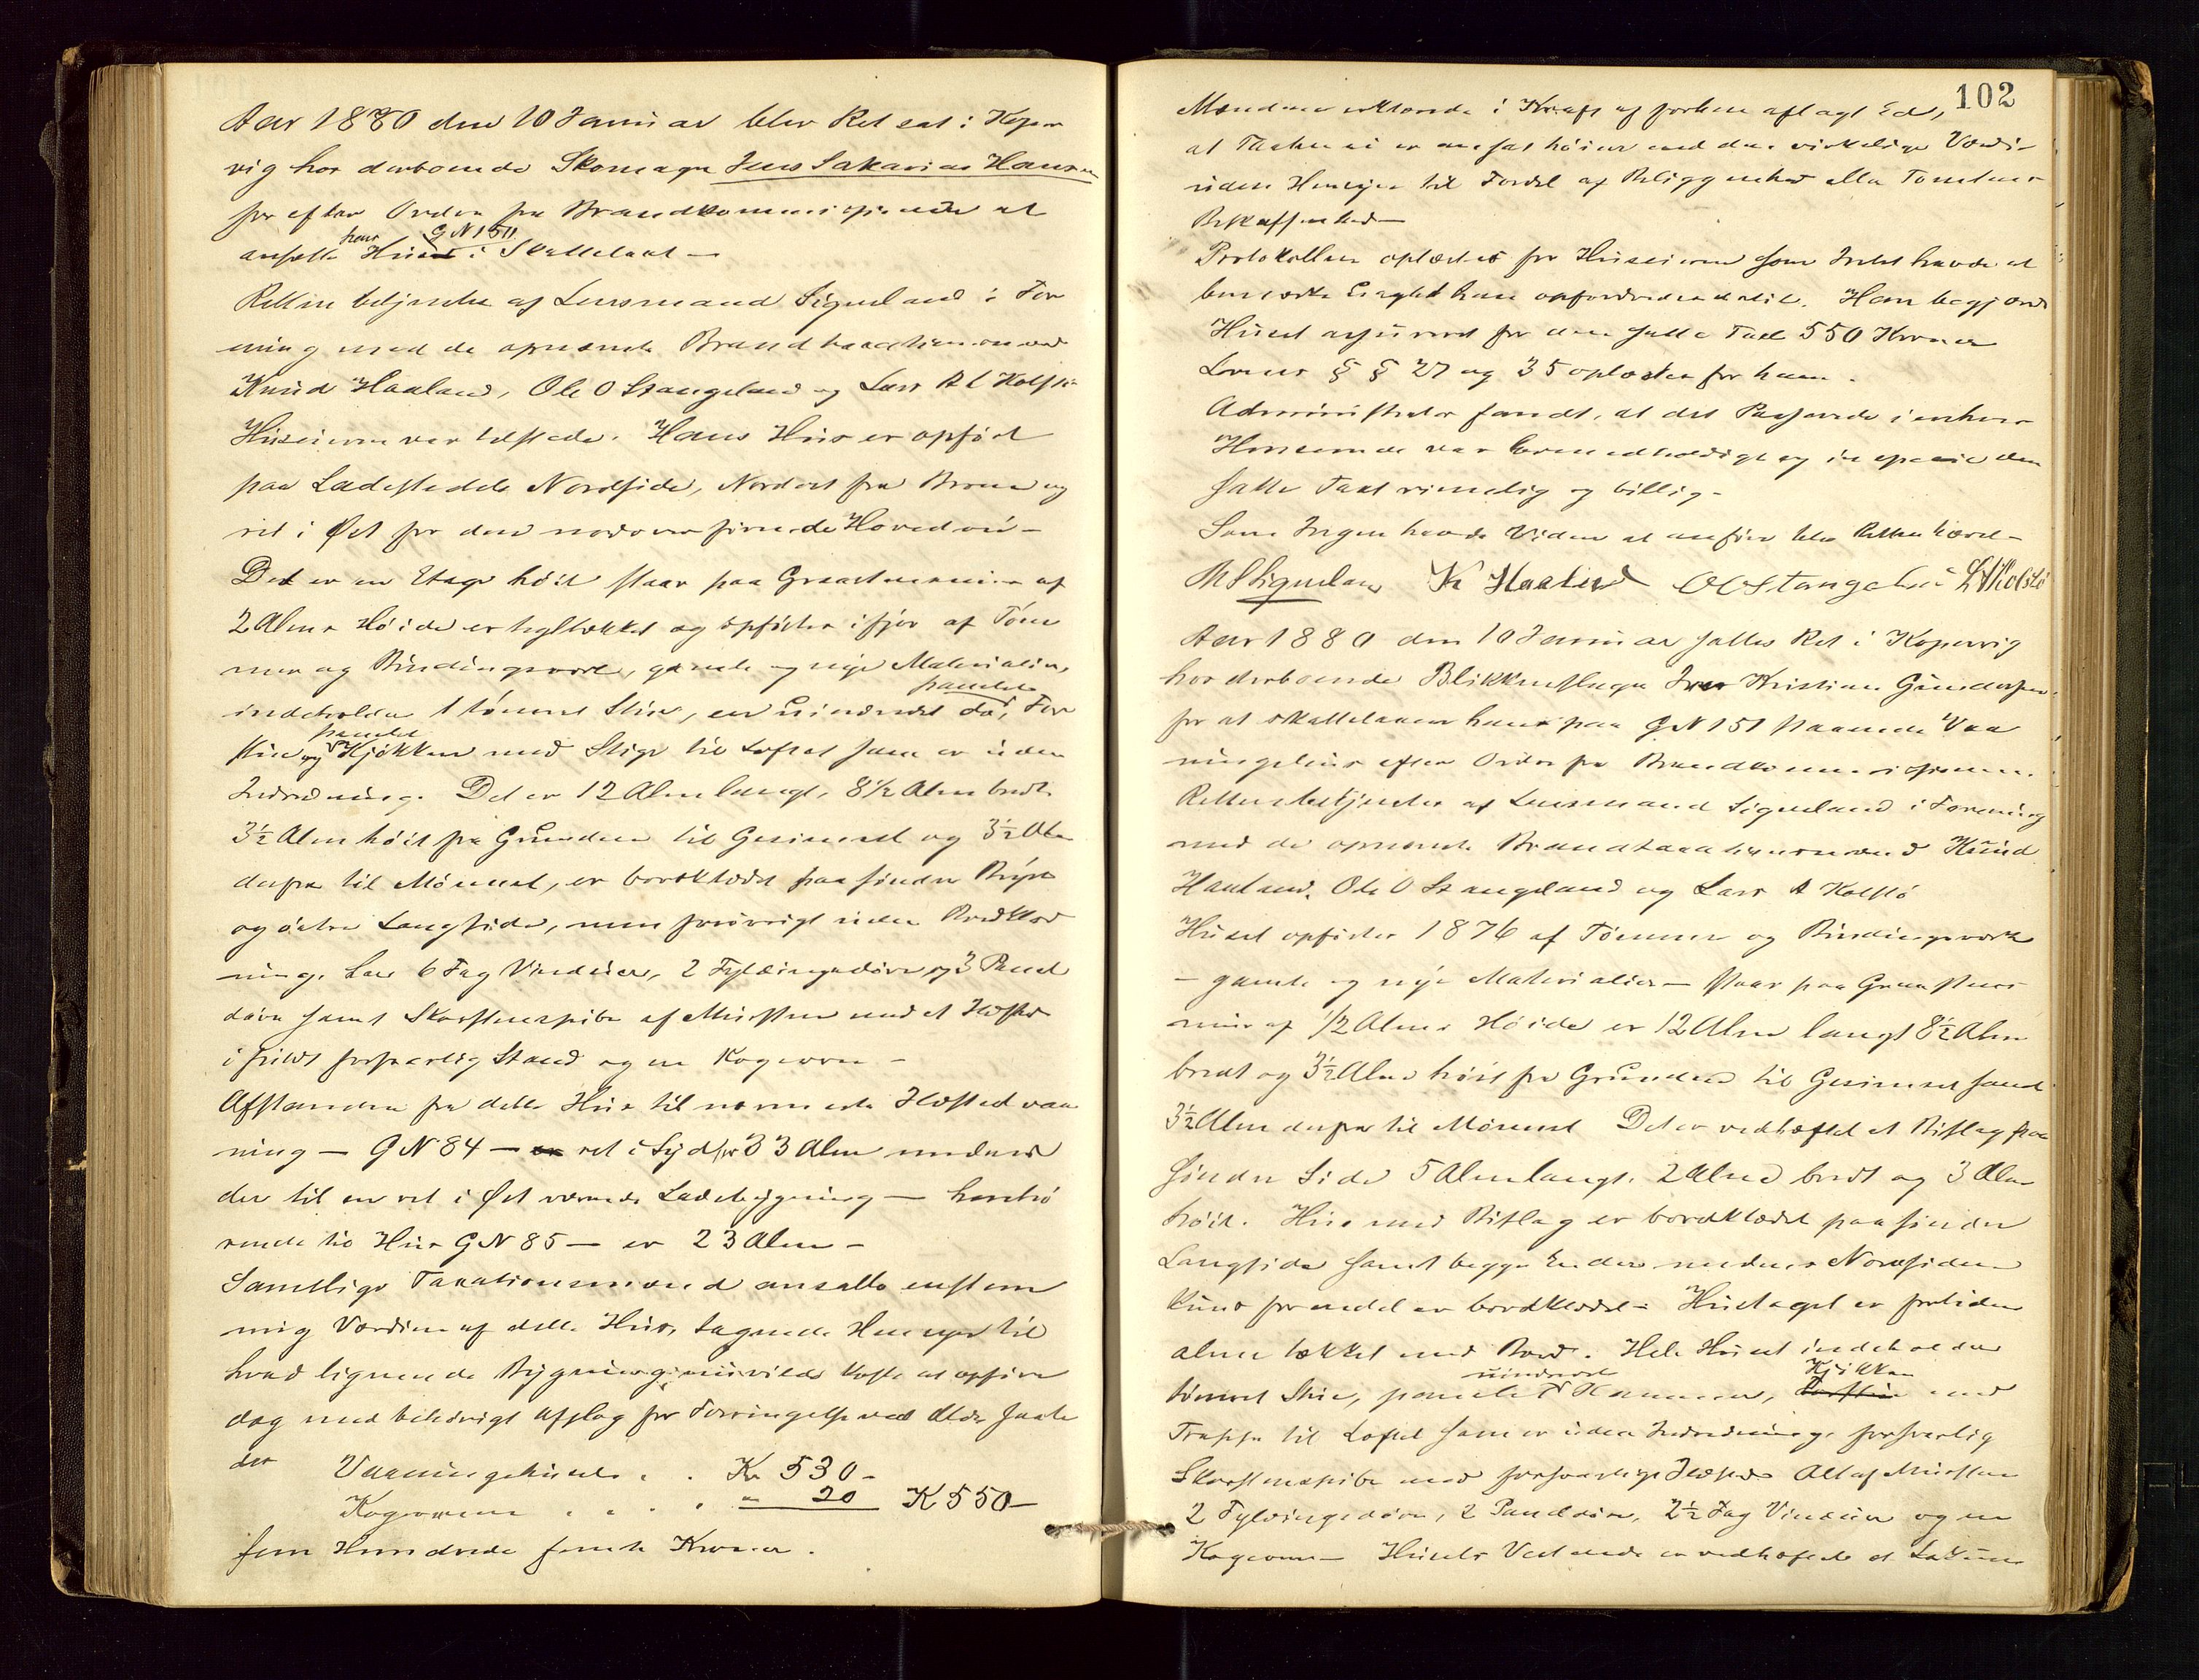 Aar 1880 den 10 Januar blev Ret sat i Koper
vig hos derboende Skomager Jens Sakarias Hansen
for efter Ordre fra Brandkommissionen at
ansætte hans Huus GN 150 i Skattetaxt —
Retten betjentes af Lensmand Signeland i For
ening med de opnævnte Brandtaxationsmænd
Knud Haaland, Ole O Stangeland og Lars A L Kolstø
Huseieren var tilstede. Hans Hus er opført
paa Ladestedets Nordside, Nordost fra Broen og
ret i Øst for den nordover førende Hovedvei —
Det er en Etage høit staar paa Graastensmur af
2 Alens Høide er tegltækket og opførtes ifjor af Tøm
mer og Bindingsværk, gamle og nye Materialier,
indeholder 1 tømret Stue, en uindredet do, panelet For
stue og panelet Kjøkken med Stige til Loftet som er uden
Indredning. Det er 12 Alen langt, 8½ Alen bredt
3½ Alen høit fra Grunden til Gesimset og 3½ Alen
derfra til Mønnet, er bordklædt paa søndre Røst
og østre Langside, men forøvrigt uden Bordklæd
ning. Har 6 Fag Vinduer, 2 Fyldingsdøre og 3 Panel
døre samt Skorstenspibe af Mursten med et Ildsted
i fuldt forsvarlig Stand og en Kogeovn —
Afstanden fra dette Hus til nærmeste Ildsted vaa
ning — GN 84 — ret i Syd for 33 Alen medens
der til en ret i Øst værende Ladebygning — henhø
rende til Hus GN 85 — er 23 Alen —
Samtlige Taxationsmænd ansatte enstem
mig Værdien af dette Hus, tagende Hensyn til
hvad lignende Bygning nu vilde koste at opføre
dog med tilbørligt Afslag for Forringelse ved Ælde saale
des Vaaningshuset . . Kr 530 —
Kogeovnen . . . . " 20 K 550 —
fem Hundrede femti Kroner.
102
Mændene erklærede i Kraft af forhen aflagt Ed,
at Taxten ei er ansat høiere end den virkelige Værdi
uden Hensyn til Fordel af Beliggenhed eller Tomtens
Beskaffenhed —
Protokollen oplæstes for Huseieren som Intet havde at
bemærke uagtet han opfordredes dertil. Han begjærede
Huset assureret for den satte Taxt 550 Kroner
Lovens § § 27 og 35 oplæstes for ham.
Administrator fandt, at det Passerede i enhver
Henseende var lovmedholdigt og in specie den
satte Taxt rimelig og billig —
Som Ingen havde Videre at anføre blev Retten hævet —
Signeland K Haaland O O Stangeland L A Kolstø
Aar 1880 den 10 Januar sattes Ret i Kopervig
hos derboende Blikkenslager Iver Kristian Gundersen
for at skattetaxere hans paa GN 151 staaende Vaa
ningshus efter Ordre fra Brandkommissionen.
Retten betjentes af Lensmand Signeland i Forening
med de opnævnte Brandtaxationsmænd Knud
Haaland, Ole O Stangeland og Lars A Kolstø
Huset opførtes 1876 af Tømmer og Bindingsværk
— gamle og nye Materialier — staar paa Graastens
mur af 1/2 Alens Høide er 12 Alen langt 8½ Alen
bredt og 3½ Alen høit fra Grunden til Gesimset samt
3½ Alen derfra til Mønnet Det er vedhæftet et Bislag paa
søndre Side 5 Alen langt, 2 Alen bredt og 3 Alen
høit. Hus med Bislag er bordklædt paa søndre
Langside samt begge Ender medens Nordsiden
kun for en del er bordklædt — Hustaget er for tiden
alene tækket med Bord. Hele Huset indeholder
tømret Stue, panelet uindredet Kammer, Kjøkken med
Trappe til Loftet som er uden Indredning, forsvarlig
Skorstenspibe med forsvarlige Ildsted Alt af Mursten
2 Fyldingsdøre, 2 Paneldøre, 2½ Fag Vinduer og en
Kogeovn — Husets Vestende er vedhæftet et